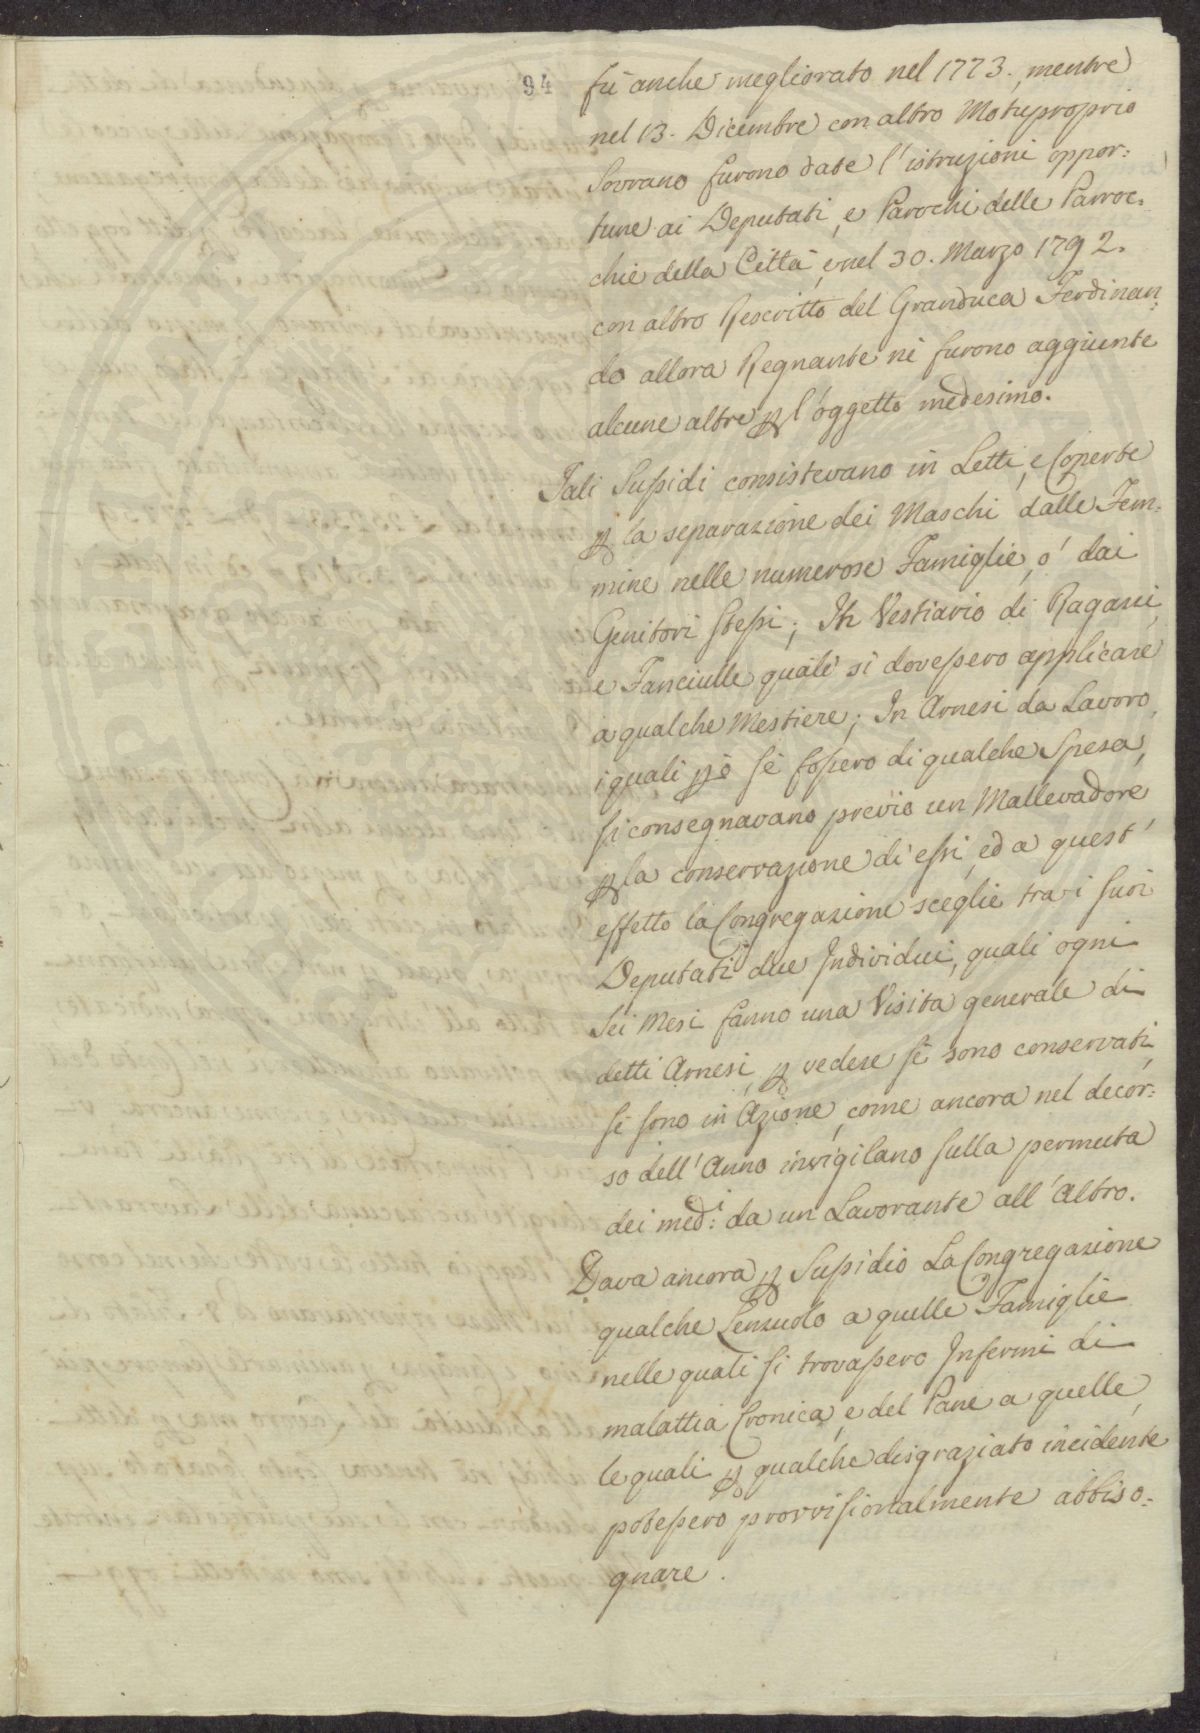 94
fù anche megliorato nel 1773., mentre
nel 13. Dicembre con altro Motuproprio
Sovrano furono date l'istruzioni oppor:
tune ai Deputati, e Parochi delle Parroc:
chie della Città, e nel 30. Marzo 1792.
con altro Rescritto del Granduca Ferdinan:
do allora Regnante ne furono aggiunte
alcune altre p l'oggetto medesimo.
Tali Sussidi consistevano in Letti, e Coperte
p la separazione dei Maschi dalle Fem:
mine nelle numerose Famiglie, o' dai
Genitori stessi; In Vestiario di Ragazzi,
e Fanciulle quali si dovessero applicare
a qualche Mestiere; In Arnesi da Lavoro,
i quali pò se fossero di qualche Spesa,
si consegnavano previo un Mallevadore
p la conservazione di essi, ed a quest'
effetto la Congregazione sceglie tra i suoi
Deputati due Individui, quali ogni
Sei Mesi fanno una Visita generale di
detti Arnesi, p vedere se sono conservati,
se sono in Azione, come ancora nel decor:
so dell'Anno invigilano sulla permuta
dei med:i da un Lavorante all'Altro.
Dava ancora p Sussidio La Congregazione
qualche Lenzuolo a quelle Famiglie
nelle quali si trovassero Infermi di
malattia Cronica, e del Pane a quelle,
le quali p qualche disgraziato incidente
potessero provvisionalmente abbiso:
gnare.